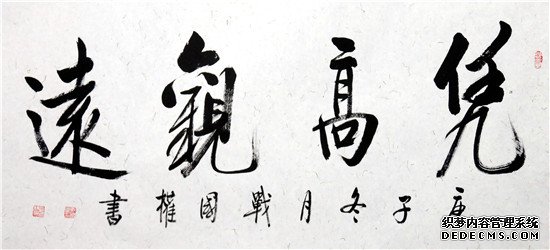 凭高觀遠
庚子冬月戰國權書
织梦内容管理系统
DEDECMS.COM